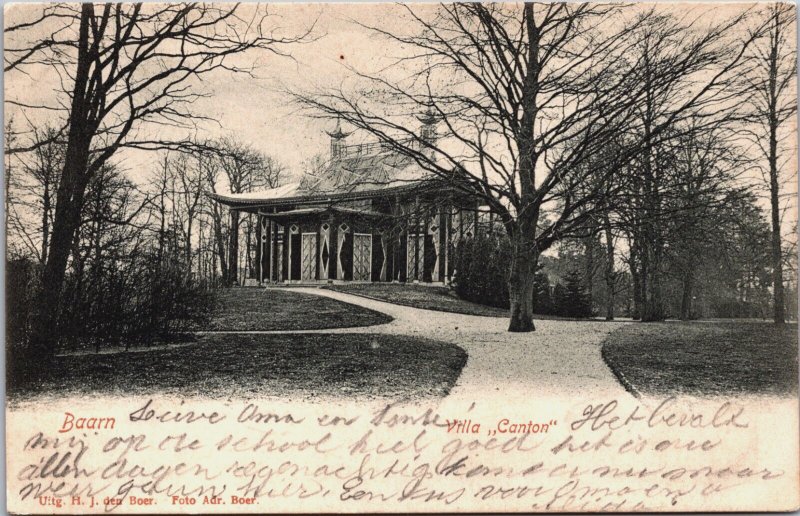 Baarn
Villa „Canton"
Lieve Oma en Tante! Het bevalt
mij op de school heel goed het is nu
allen dagen regenachtig kom u nu maar
weer gauw hier. Een kus voor Oma en u
Uitg. H. J. den Boer. Foto Adr. Boer.